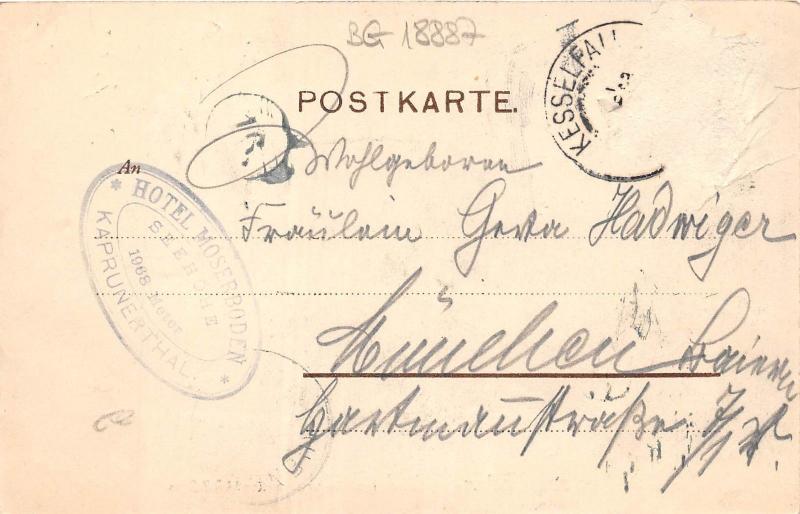 BG 18887
KESSELFALL
POSTKARTE.
An
Wohlgeboren
Fräulein Gerta Hadwiger
München Baiern
Hartmannstraße 7/1
* HOTEL MOSERBODEN *
SEEHÖHE
1968 Meter
KAPRUNERTHAL.